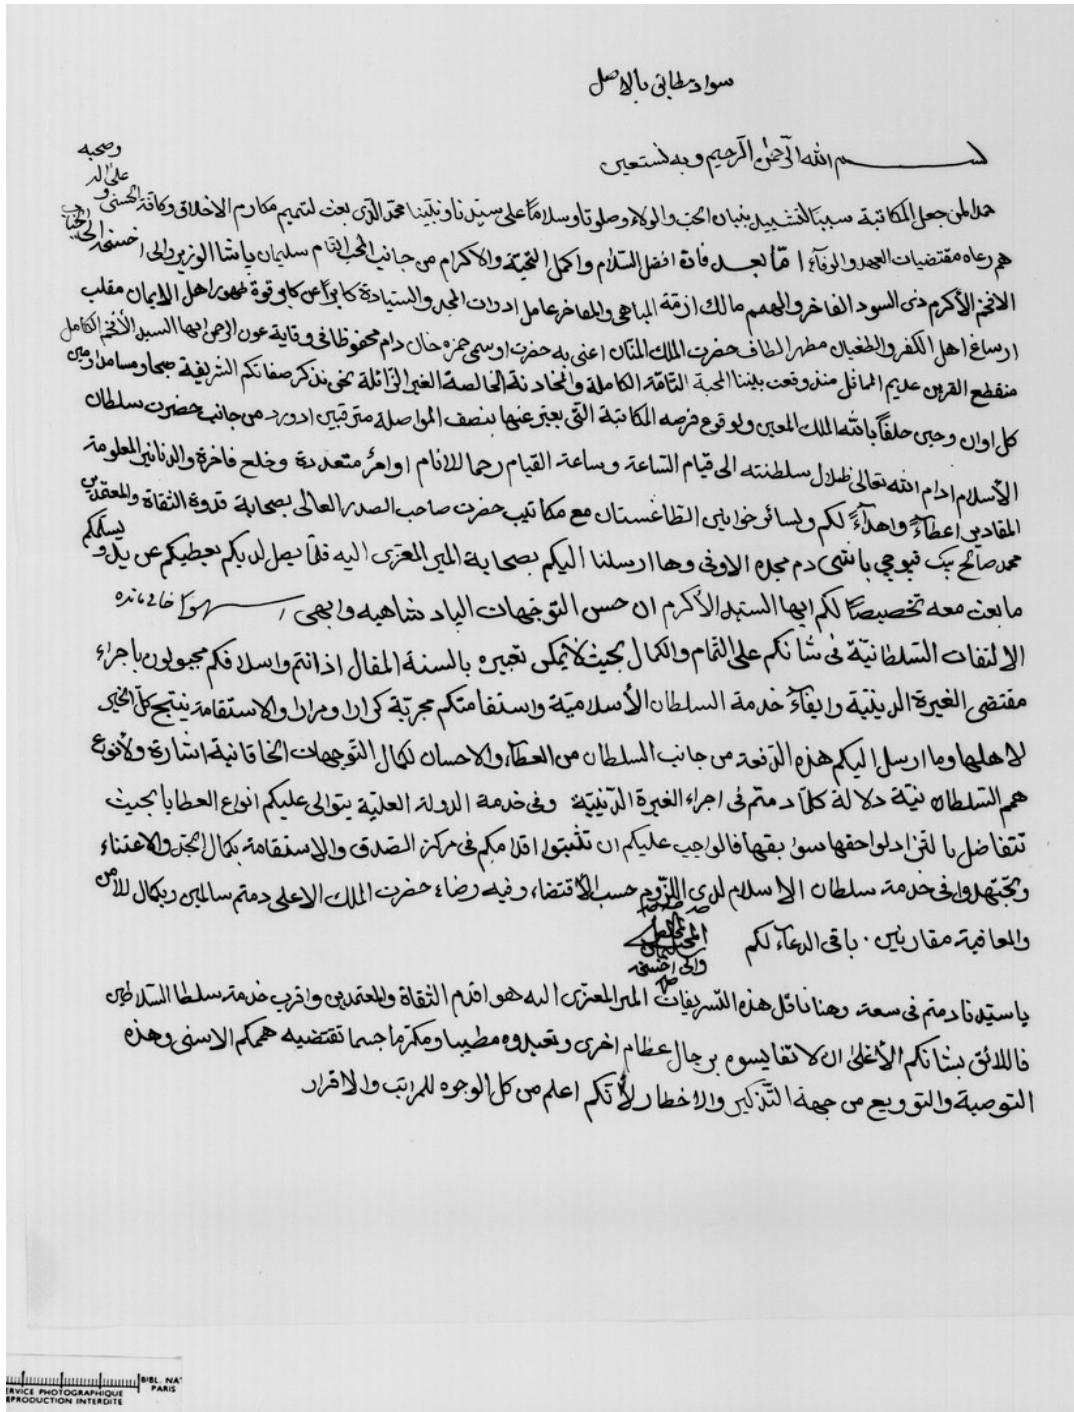 سواد مطابق بالاصل
بسم الله الرحمن الرحيم وبه نستعين
وصحبه
على اله و
حمدا لمن جعل المكاتبة سببا لتشييد بنيان الحب والولاء وصلوتا وسلاما على سيدنا ونبينا محمد الذى بعث لتتميم مكارم الاخلاق وكافة الحسنى
هم رعاه مقتضيات العهد والوفاء اما بعد فان افضل السلام واكمل التحية والاكرام من جانب المحب التام سليمان پاشا الوزير والى اخسخه الى الجناب
الافخم الأكرم ذى السود الفاخر والهمم مالك ازمة المباهى والمفاخر عامل ادوات المجد والسيادة كابرا عن كابر قوة ظهور اهل الايمان مقلب
ارساغ اهل الكفر والطغيان مظهر الطاف حضرت الملك المنان اعنى به حضرت اوسمى حمزه خان دام محفوظا فى وقاية عون الرحمن ايها السيد الأفخم الكامل
منقطع القرين عديم المماثل منذ وقعت بيننا المحبة التامة الكاملة والمخادنة الخالصة الغير الزائلة نحن نذكر صفاتكم الشريفة صباحا ومساء
كل اوان وحين حلفا بالله الملك المعين ولوقوع فرصه المكاتبة التى يعبر عنها بنصف المواصلة مترقبين من جانب حضرت سلطان
الأسلام ادام الله تعالى ظلال سلطنته الى قيام الساعة وساعة القيام رحما للانام اوامر متعددة وخلع فاخرة والدنانير المعلومة
المقادير اعطاء واهداء لكم ولسائر خوانين الطاغستان مع مكاتيب حضرت صاحب الصدر العالى بصحابة قدوة الثقاة والمعتمدين
محمد صالح بيك قبوجى باشى دم مجده الاوفى وها ارسلنا اليكم بصحابة المير المعزى اليه فلما يصل لديكم يعطيكم عن يد ويسلمكم
ما بعث معه تخصيصا لكم ايها السيد الأكرم ان حسن التوجهات الپادشاهيه وابهى سهوا خالى مانده
الالتفات السلطانية فى شانكم على التمام والكمال بحيث لا يمكن تعبيره بالسنة المقال اذ انتم واسلافكم مجبولون باجراء
مقتضى الغيرة الدينية وايفاء خدمة السلطان الأسلامية واستقامتكم مجربة كرارا ومرارا والاستقامة ينتج كل الخير
لاهلها وما ارسل اليكم هذه الدفعة من جانب السلطان من العطاء والاحسان لكمال التوجهات الخاقانية اشارة ولأنوع
همم السلطانية دلالة كلا دمتم فى اجراء الغيرة الدينية وفى خدمة الدولة العلية يتوالى عليكم انواع العطايا بحيث
تتفاضل بالتزاد لواحقها سوابقها فالواجب عليكم ان تثبتوا اقدامكم فى مركز الصدق والاستقامة بكمال الجد والاعتناء
وتجتهدوا فى خدمة سلطان الاسلام لدى اللزوم حسب الاقتضاء وفيه رضاء حضرت الملك الاعلى دمتم سالمين وبكمال للأمن
والمعافية مقارنين . باقى الدعاء لكم
المحب
سليمان
والى اخسخه
ياسيدنا دمتم فى سعة وهنا ناقل هذه التشريفات المير المعزى اليه هو اقدم الثقاة والمعتمدين واقرب خدمة سلطان السلاطين
فاللائق بشانكم الأعلى ان لا تقايسوه برجال عظام اخرى وتعيدوه مطيبا ومكرما حسبما تقتضيه هممكم الاسنى وهذه
التوصية والتوديع من جهة التذكير والاخطار لأنكم اعلم من كل الوجوه للمراتب والاقرار
BIBL. NAT
PARIS
SERVICE PHOTOGRAPHIQUE
REPRODUCTION INTERDITE